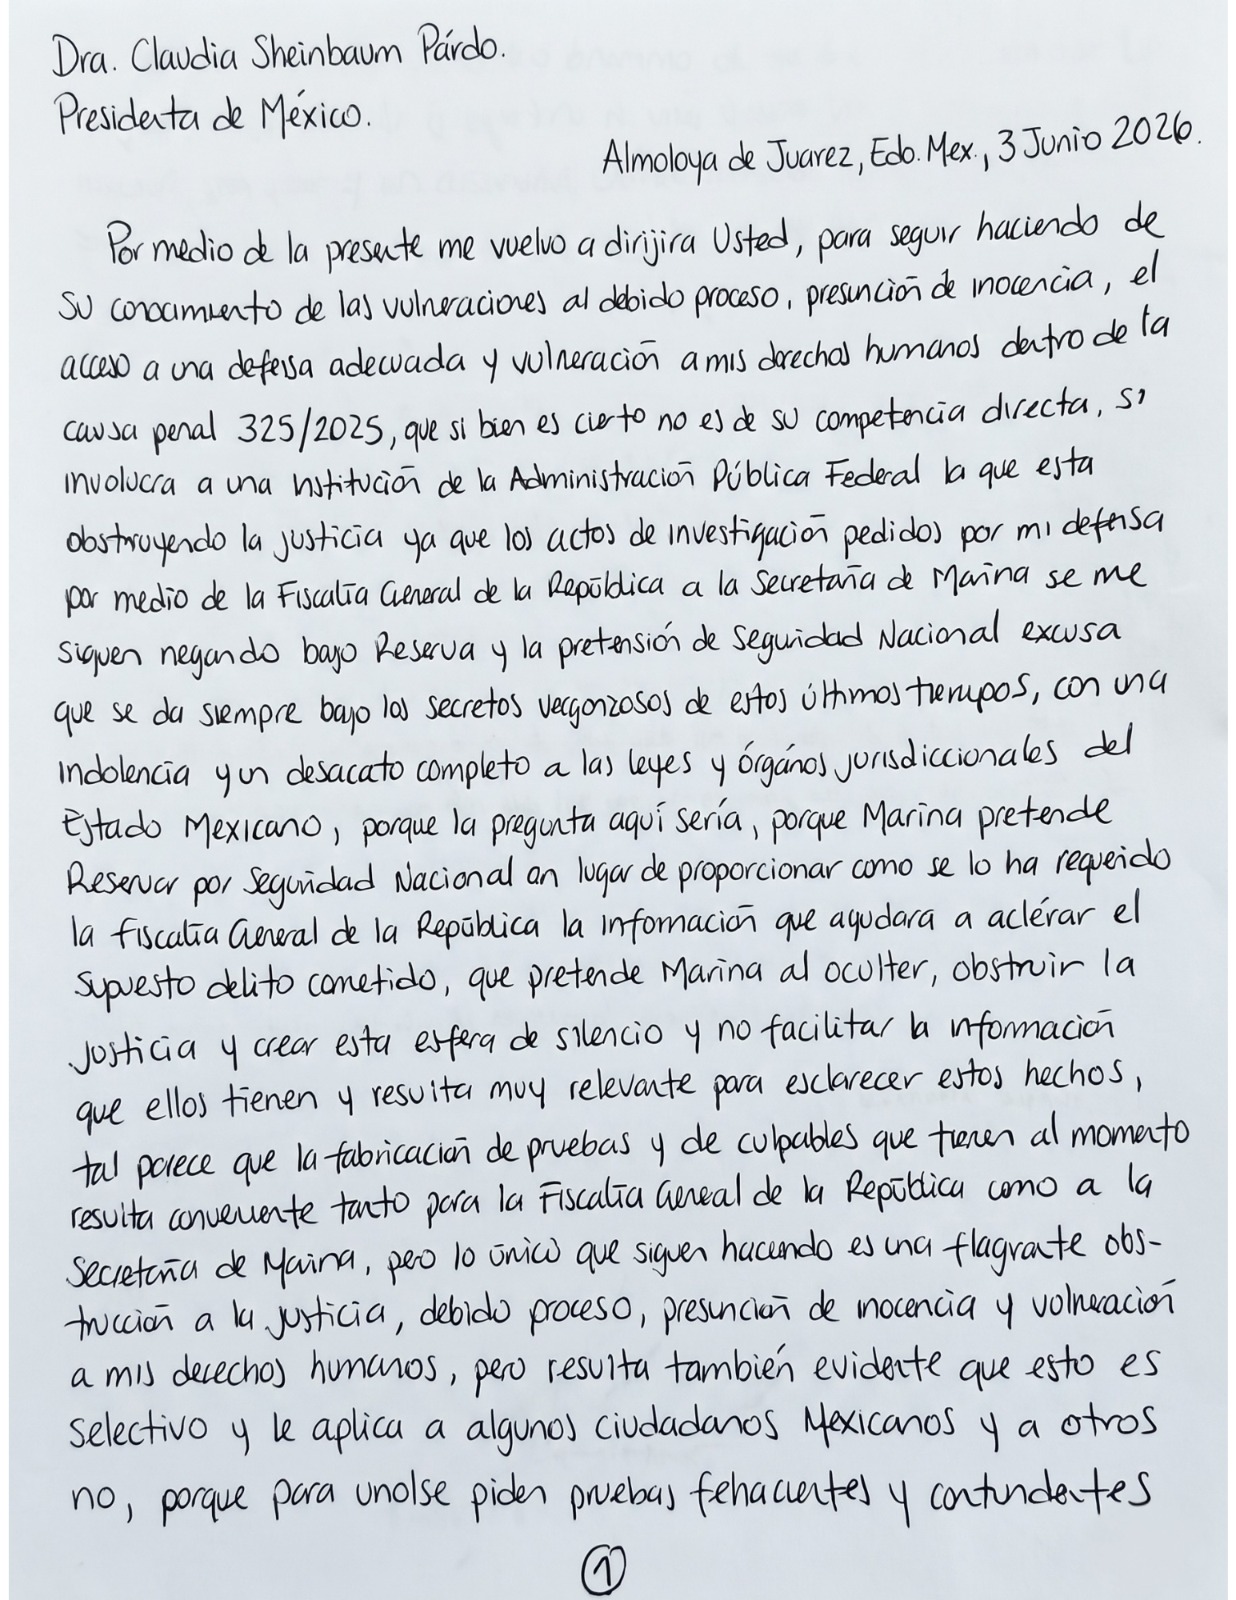 Dra. Claudia Sheinbaum Párdo.
Presidenta de México.
Almoloya de Juarez, Edo. Mex., 3 Junio 2026.
Por medio de la presente me vuelvo a dirijira Usted, para seguir haciendo de
su conocimiento de las vulneraciones al debido proceso, presunción de inocencia, el
acceso a una defensa adecuada y vulneración a mis derechos humanos dentro de la
causa penal 325/2025, que si bien es cierto no es de su competencia directa, si
involucra a una institución de la Administración Pública Federal la que esta
obstruyendo la justicia ya que los actos de investigación pedidos por mi defensa
por medio de la Fiscalía General de la República a la Secretaría de Marina se me
siguen negando bajo Reserva y la pretensión de Seguridad Nacional excusa
que se da siempre bajo los secretos vergonzosos de estos últimos tiempos, con una
indolencia y un desacato completo a las leyes y órgános jurisdiccionales del
Estado Mexicano, porque la pregunta aquí sería, porque Marina pretende
Reservar por Seguridad Nacional en lugar de proporcionar como se lo ha requerido
la fiscalía General de la República la información que ayudara a aclérar el
supuesto delito cometido, que pretende Marina al ocultar, obstruir la
justicia y crear esta esfera de silencio y no facilitar la información
que ellos tienen y resulta muy relevante para esclarecer estos hechos,
tal parece que la fabricación de pruebas y de culpables que tienen al momento
resulta conveniente tanto para la Fiscalía General de la República como a la
Secretaría de Marina, pero lo único que siguen haciendo es una flagrante obs-
trucción a la justicia, debido proceso, presunción de inocencia y vulneración
a mis derechos humanos, pero resulta también evidente que esto es
selectivo y le aplica a algunos ciudadanos Mexicanos y a otros
no, porque para unolse piden pruebas fehacientes y contundentes
1